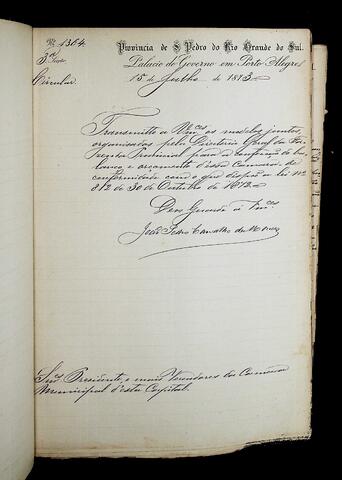 Nº 1304.
3ª Secção
Circular.
Provincia de S. Pedro do Rio Grande do Sul.
Palacio do Governo em Porto Alegre
15 de Julho de 1873.
Transmitto a Vmcês os modelos juntos,
organisados pela Directoria Geral da Fa-
zenda Provincial para a confecção do ba-
lanço e orçamento d'essa Camara de
conformidade com o que dispõe a lei nº
812 de 30 de Outubro de 1872.
Deos Guarde a Vmcês
João Pedro Carvalho de Moraes
Snrs Presidente e mais Vereadores da Camara
Municipal d'esta Capital.